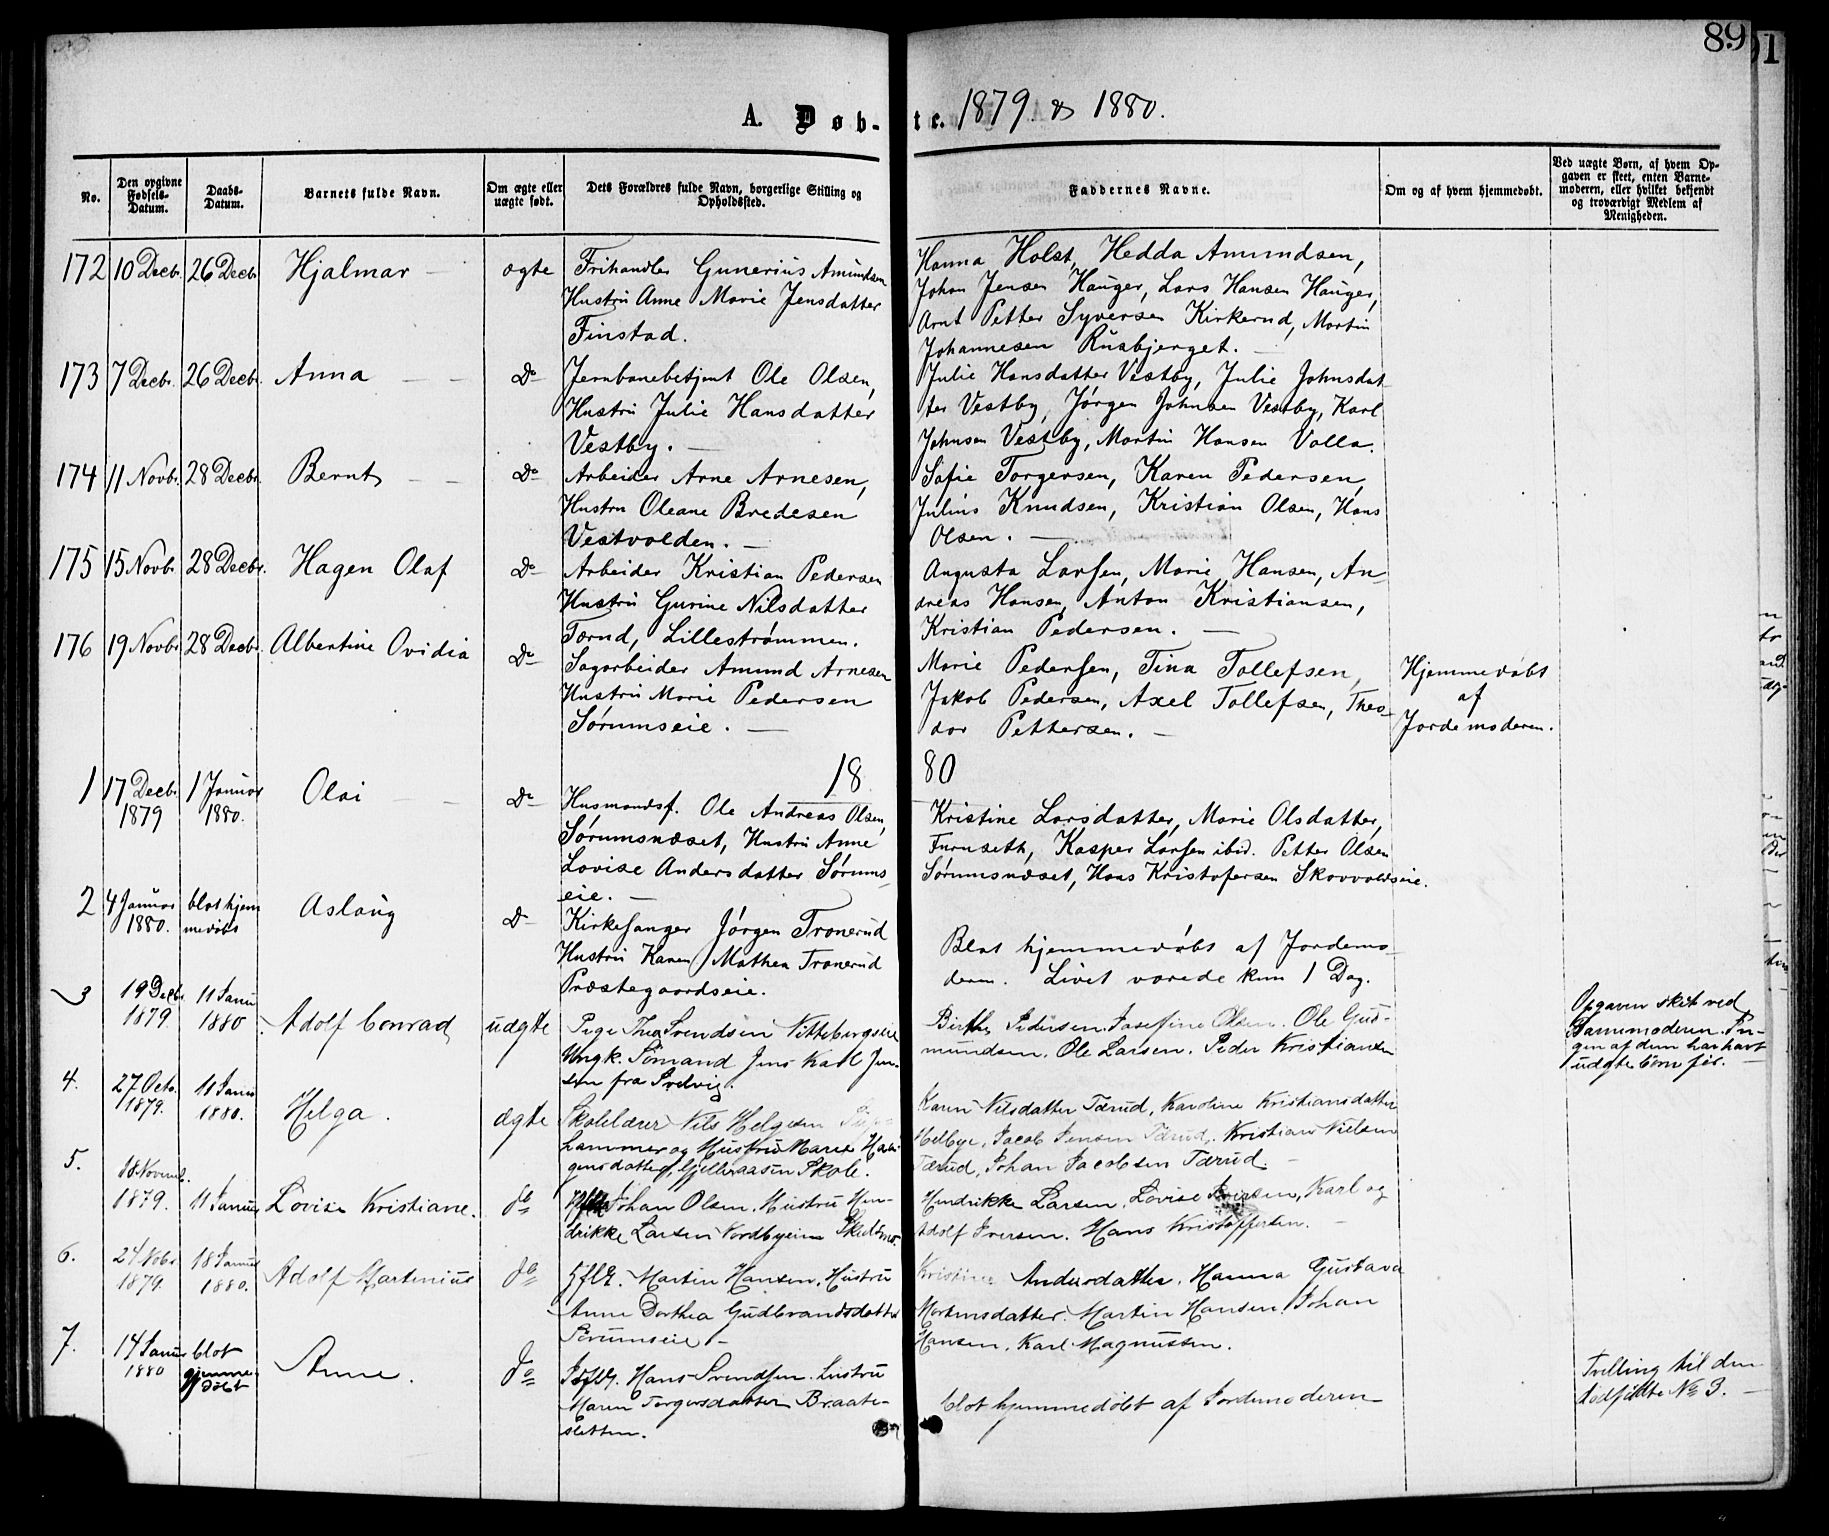 89
91
A. Døb-te. 1879 & 1880.
No.
Den opgivne Fødsels-Datum.
Daabs-Datum.
Barnets fulde Navn.
Om ægte eller uægte født.
Dets Forældres fulde Navn, borgerlige Stilling og Opholdssted.
Faddernes Navne.
Om og af hvem hjemmedøbt.
Ved uægte Børn, af hvem Op-
gaven er skeet, enten Barne-
moderen, eller hvilket bekjendt
og troværdigt Medlem af
Menigheden.
172 10 Decbr. 26 Decbr. Hjalmar ægte
Frihandler Gunerius Amundsen
Hustru Anne Marie Jensdatter
Finstad.
Hanna Holst, Hedda Amundsen,
Johan Jensen Hauger, Lars Hansen Hauger,
Arnt Petter Syversen Kirkerud, Martin
Johannesen Rusbjerget.
173 7 Decbr. 26 Decbr. Anna Do
Jernbanebetjent Ole Olsen,
Hustru Julie Hansdatter
Vestby.
Julie Hansdatter Vestby, Julie Johnsdat-
ter Vestby, Jørgen Johnsen Vestby, Karl
Johnsen Vestby, Martin Hansen Valla.
174 11 Novbr. 28 Decbr. Bernt Do
Arbeider Arne Arnesen,
Hustru Oleane Bredesen
Vestvolden.
Sofie Torgersen, Karen Pedersen,
Julius Knudsen, Kristian Olsen, Hans
Olsen.
175 15 Novbr. 28 Decbr. Hagen Olaf Do
Arbeider Kristian Pedersen
Hustru Gurine Nilsdatter
Torud, Lillestrømmen.
Augusta Larsen, Marie Hansen, An-
dreas Hansen, Anton Kristiansen,
Kristian Pedersen.
176 19 Novbr. 28 Decbr. Albertine Ovidia Do
Sagarbeider Amund Arnesen
Hustru Marie Pedersen
Sørumseie.
Marie Pedersen, Tina Tollefsen,
Jakob Pedersen, Axel Tollefsen, Theo-
dor Pettersen.
Hjemmedøbt
af
Jordemoderen.
1880
1 17 Decbr. 1879 1 Januar 1880. Olai Do
Husmandsf. Ole Andreas Olsen,
Sørumsnæset, Hustru Anne
Lovise Andersdatter Sørums-
eie.
Kristine Larsdatter, Marie Olsdatter,
Furuseth, Kasper Larsen ibid. Petter Olsen
Sørumsnæset, Hans Kristofersen Skovvoldseie.
2 4 Januar 1880. blot hjem
medøbt Aslaug Do
Kirkesanger Jørgen Tronerud
Hustru Karen Mathea Tronerud
Præstegaardseie.
Blot hjemmedøbt af Jordemo-
deren. Livet varede kun 1 Dag.
3 19 Decbr. 1879. 11 Janu 1880 Adolf Conrad uægte
Pige Thea Svendsen Vittebergseie
Ungk. Sömand Jens Karl Jen-
sen fra Svelvig.
Birthe Pedersen. Josefine Olsen. Ole Gud-
mundsen. Ole Larsen. Peder Kristiansen
Opgaven sket ved
Barnemoderen. In-
gen af dem har havt
uægte börn för.
4. 27 Octo. 1879. 11 Janu 1880. Helga. ægte
Skolelærer Nils Helgesen
hammer og Hustru Maren Haa-
gensdatter, Gjelleraasen Skole.
Karen Nilsdatter Tærud, Karoline Kristiansdatter
Melbye, Jacob Jensen Tærud, Kristian Nielsen
Tærud, Johan Jacobsen Tærud.
5. 18 Novemb. 1879. 11 Januar Lovise Kristiane. do
Johan Olsen. Hustru Hen-
drikke Larsen Nordbyeien Skedsmo.
Hendrikke Larsen. Lovise Iversen, Karl og
Adolf Iversen. Hans Kristoffersen.
6. 24 Nobr 1879. 18 Januar 1880. Adolf Martinius do
Martin Hansen, Hustru
Anne Dorthea Gudbrandsdatter
Sörumseie
Kristine Andersdatter. Hanna Gustava
Mortensdatter. Martin Hansen. Johan
Hansen. Karl Magnussen.
7. 14 Januar 1880 blot
hjemme
döbt Anne. do
Hans Svendsen. Hustru
Maren Torgersdatter Braate-
sletten.
blot hjemmedöbt af Jordemoderen
Tvilling til den
dödfödte No 3.